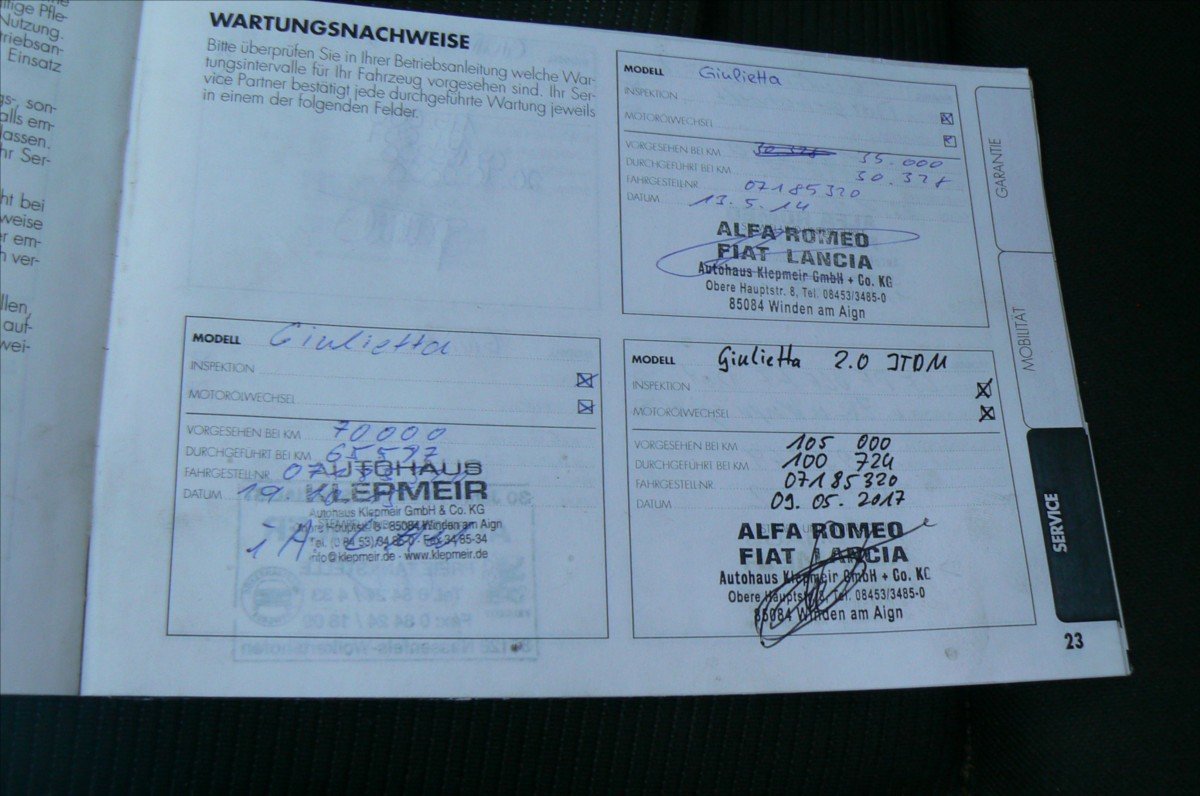 tige Pfle-
Nutzung.
triebsan-
Einsatz
gs-, son-
alls em-
lassen.
hr Ser-
ht bei
weise
er em-
n ver-
llen,
auf-
wei-
WARTUNGSNACHWEISE
Bitte überprüfen Sie in Ihrer Betriebsanleitung welche War-
tungsintervalle für Ihr Fahrzeug vorgesehen sind. Ihr Ser-
vice Partner bestätigt jede durchgeführte Wartung jeweils
in einem der folgenden Felder.
MODELL Giulietta
INSPEKTION
MOTORÖLWECHSEL
VORGESEHEN BEI KM 30.328 35.000
DURCHGEFÜHRT BEI KM 30.328
FAHRGESTELL-NR. 07185320
DATUM 13.5.14
ALFA ROMEO
FIAT LANCIA
Autohaus Klepmeir GmbH + Co. KG
Obere Hauptstr. 8, Tel. 08453/3485-0
85084 Winden am Aign
MODELL Giulietta
INSPEKTION
MOTORÖLWECHSEL
VORGESEHEN BEI KM 70000
DURCHGEFÜHRT BEI KM 65597
FAHRGESTELL-NR.
DATUM 19
AUTOHAUS
KLEPMEIR
Autohaus Klepmeir GmbH & Co. KG
Hauptstr. 8 · 85084 Winden am Aign
Tel. (0 84 53) 34 85-0 · Fax 34 85-34
info@klepmeir.de · www.klepmeir.de
i.A.
MODELL Giulietta 2.0 JTDM
INSPEKTION
MOTORÖLWECHSEL
VORGESEHEN BEI KM 105 000
DURCHGEFÜHRT BEI KM 100 724
FAHRGESTELL-NR. 07185320
DATUM 09.05.2017
ALFA ROMEO
FIAT LANCIA
Autohaus Klepmeir GmbH + Co. KG
Obere Hauptstr. 8, Tel. 08453/3485-0
85084 Winden am Aign
GARANTIE
MOBILITÄT
SERVICE
23